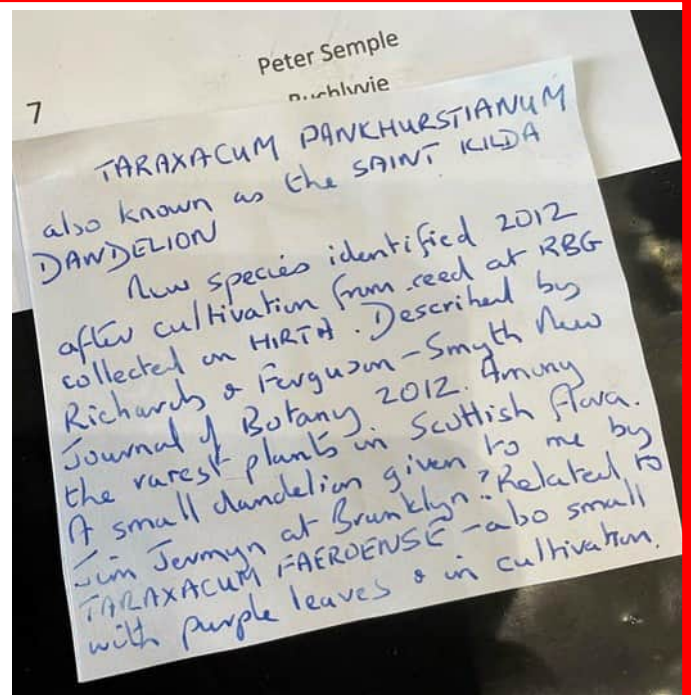 Peter Semple
7
TARAXACUM PANKHURSTIANUM
also known as the SAINT KILDA
DANDELION
New species identified 2012
after cultivation from seed at RBG
collected on HIRTA. Described by
Richards & Ferguson-Smyth New
Journal of Botany 2012. Among
the rarest plants in Scottish flora.
A small dandelion given to me by
Jim Jermyn at Branklyn. ?Related to
TARAXACUM FAEROENSE - also small
with purple leaves & in cultivation.